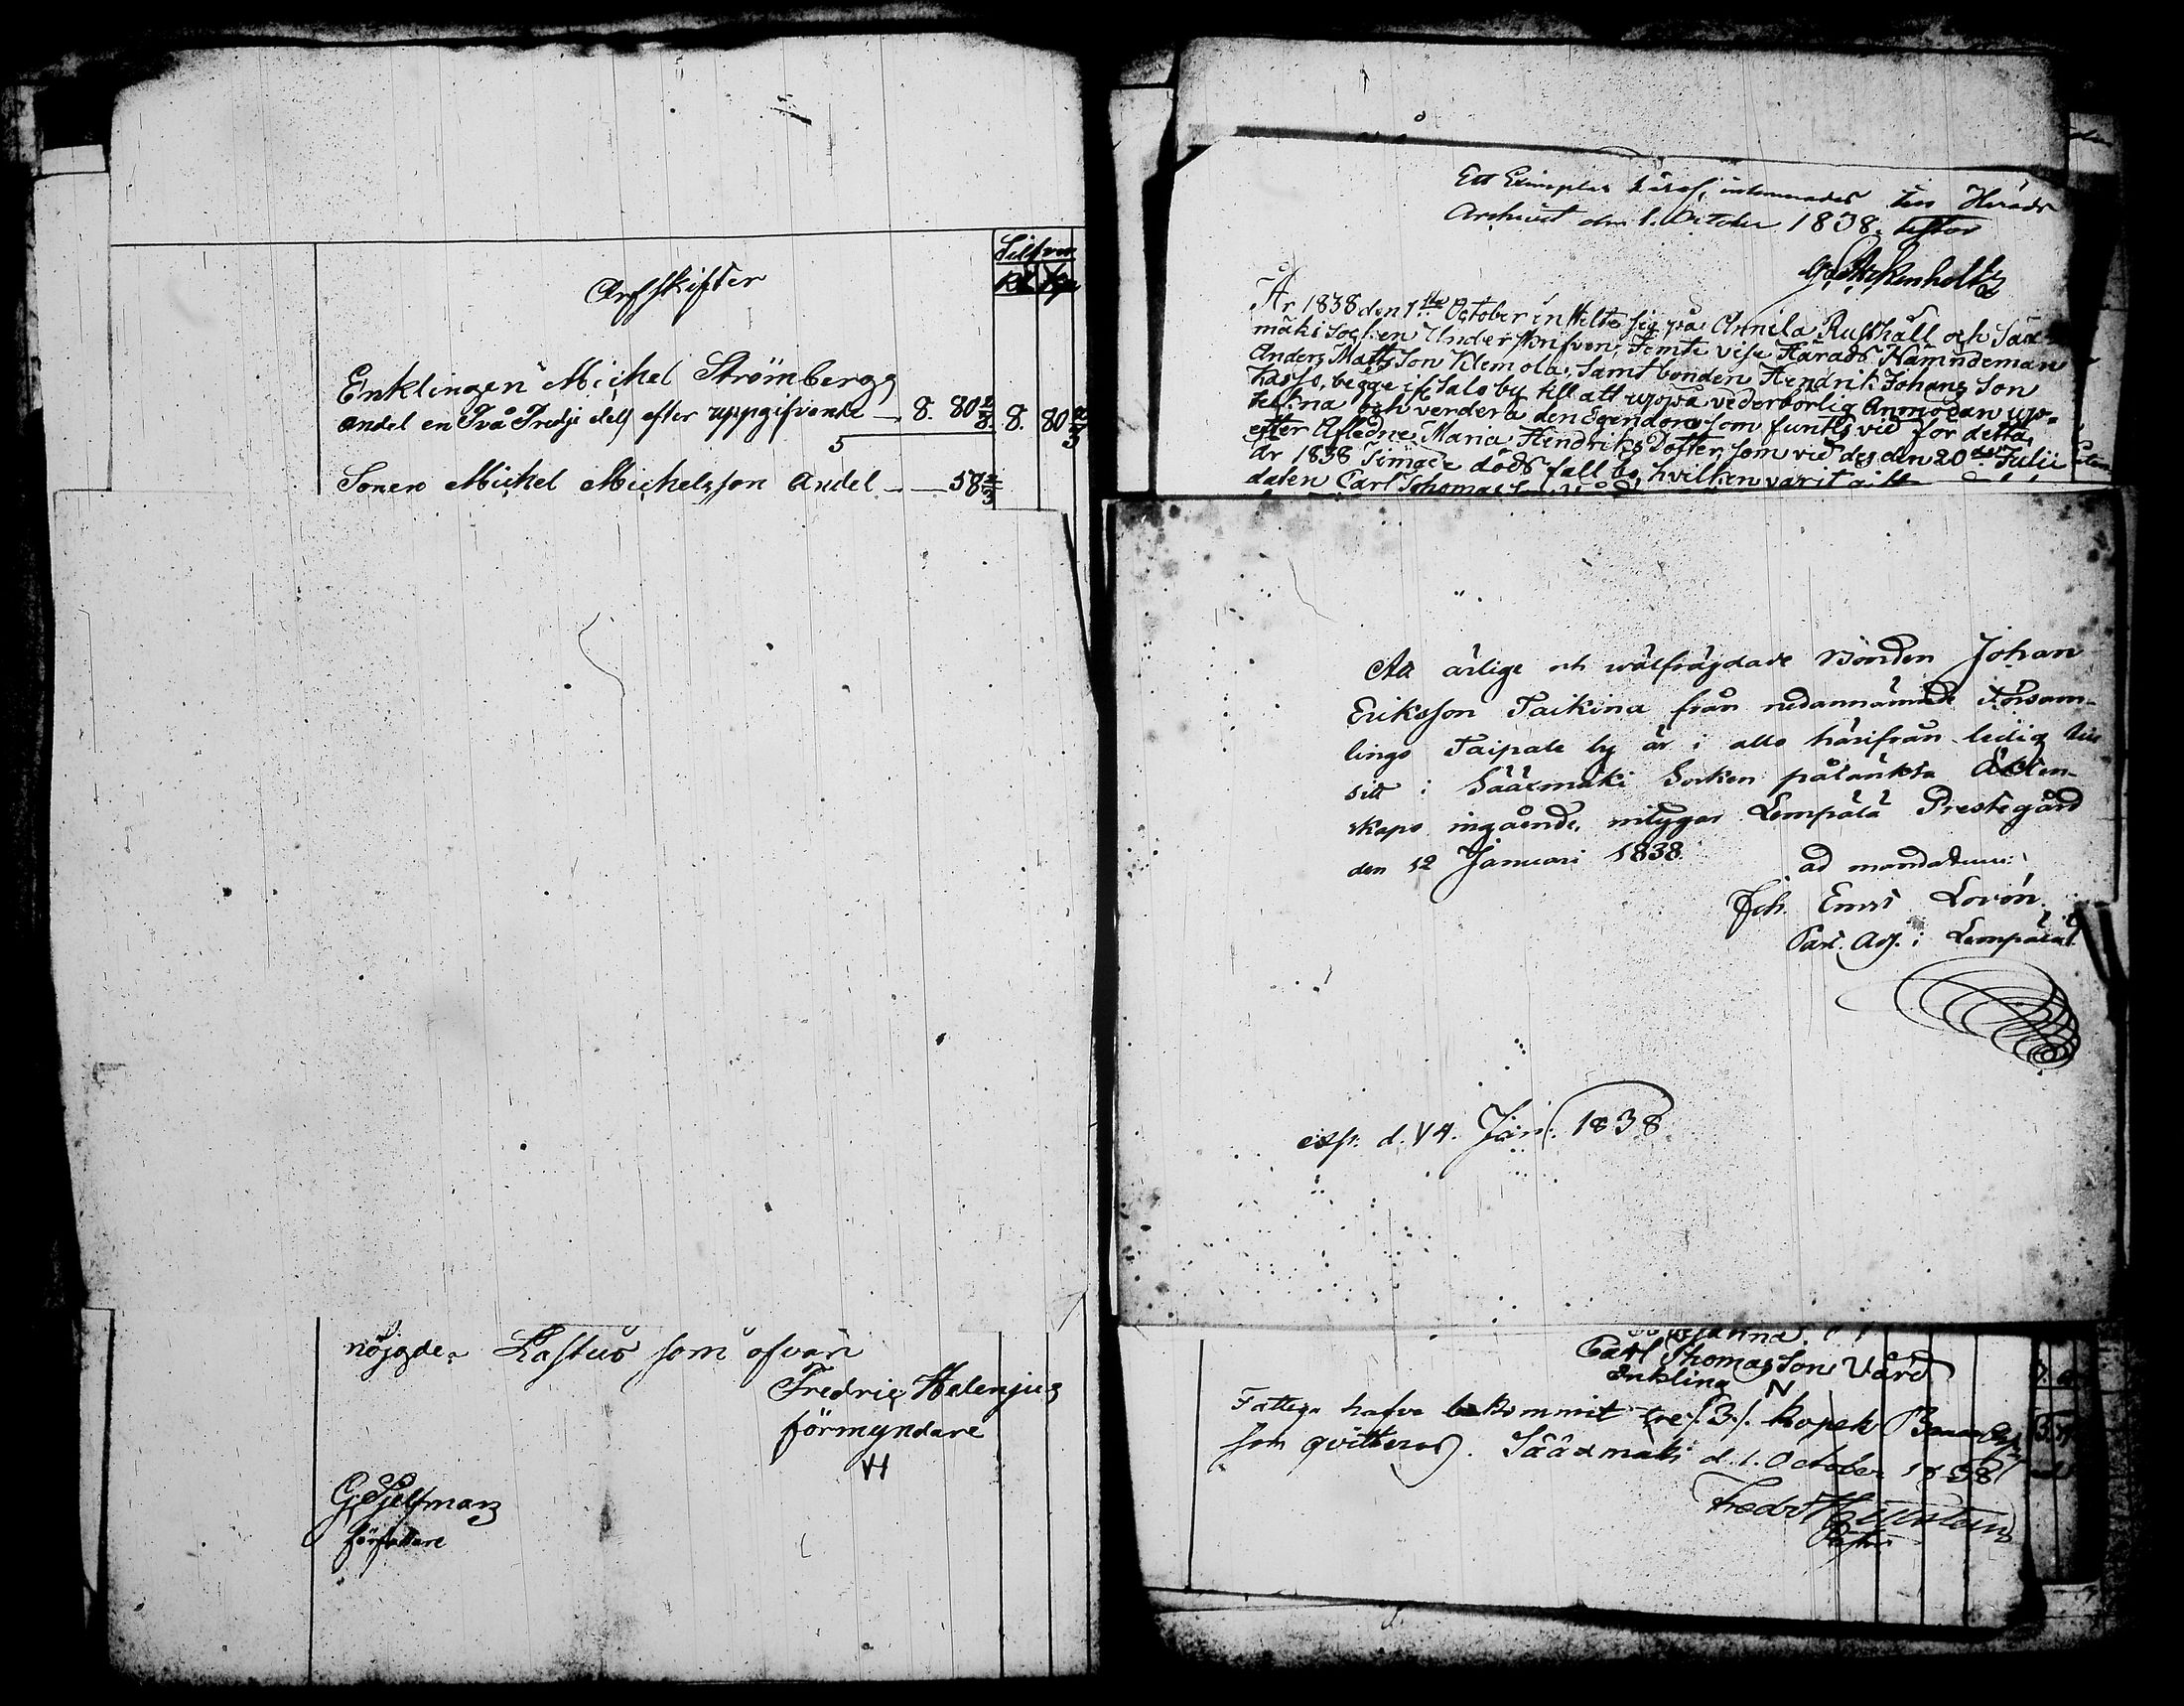 Arfskifter
Silfver
Rub Kop
Enklingen Michel Strömbergs
andel en Två Tredje dels efter uppgifvande — 8. 80 2/3. 8. 80 2/3
Sonen Michel Michelsson Andel — 58 2/3
nöjgde. Lastus som ofvan
Fredric Helenius
förmyndare
G. Sjelfman
författare
Ett Exemplar häraf inlemnades till Härads
Archivet den 1. October 1838. testor
År 1838 den 1ste October instelte sig på Annila Rusthåll och Sax-
mäki Socken Underskrifven, Femte vise Härads Nämndeman
Anders Mattsson Klemola, samt bonden Hendrik Johans Son
Kasso, begge if. Salo by till att uppå vederbörlig Anmodan upp-
tekna och verdera den Egendom som funts vid för detta
efter Afledne Maria Hendriks Dotter, som vid des den 20de Julii
År 1838 timade döds fall bo, hvilken varit gift
daten Carl Thomasson
Att ärlige och wälfrägdade Bonden Johan
Eriksson Taikina från nedannämnde Försam-
lings Taipale by är i allo härifrån ledig till
sitt i Sääxmäki Socken påtänkta Äkten-
skaps ingående, intygar Lempälä Prestegård
den 12 Januari 1838.
ad mandatum:
Joh. Ernst Lovén.
Past. Adj. i Lempälä.
exp. d. 14. Jan. 1838
Carl Thomasson Vård
Enkling N
Fattiga hafva bekommit tre /.3./. kopek
som qvitteras. Sääxmäki d. 1. October 1838